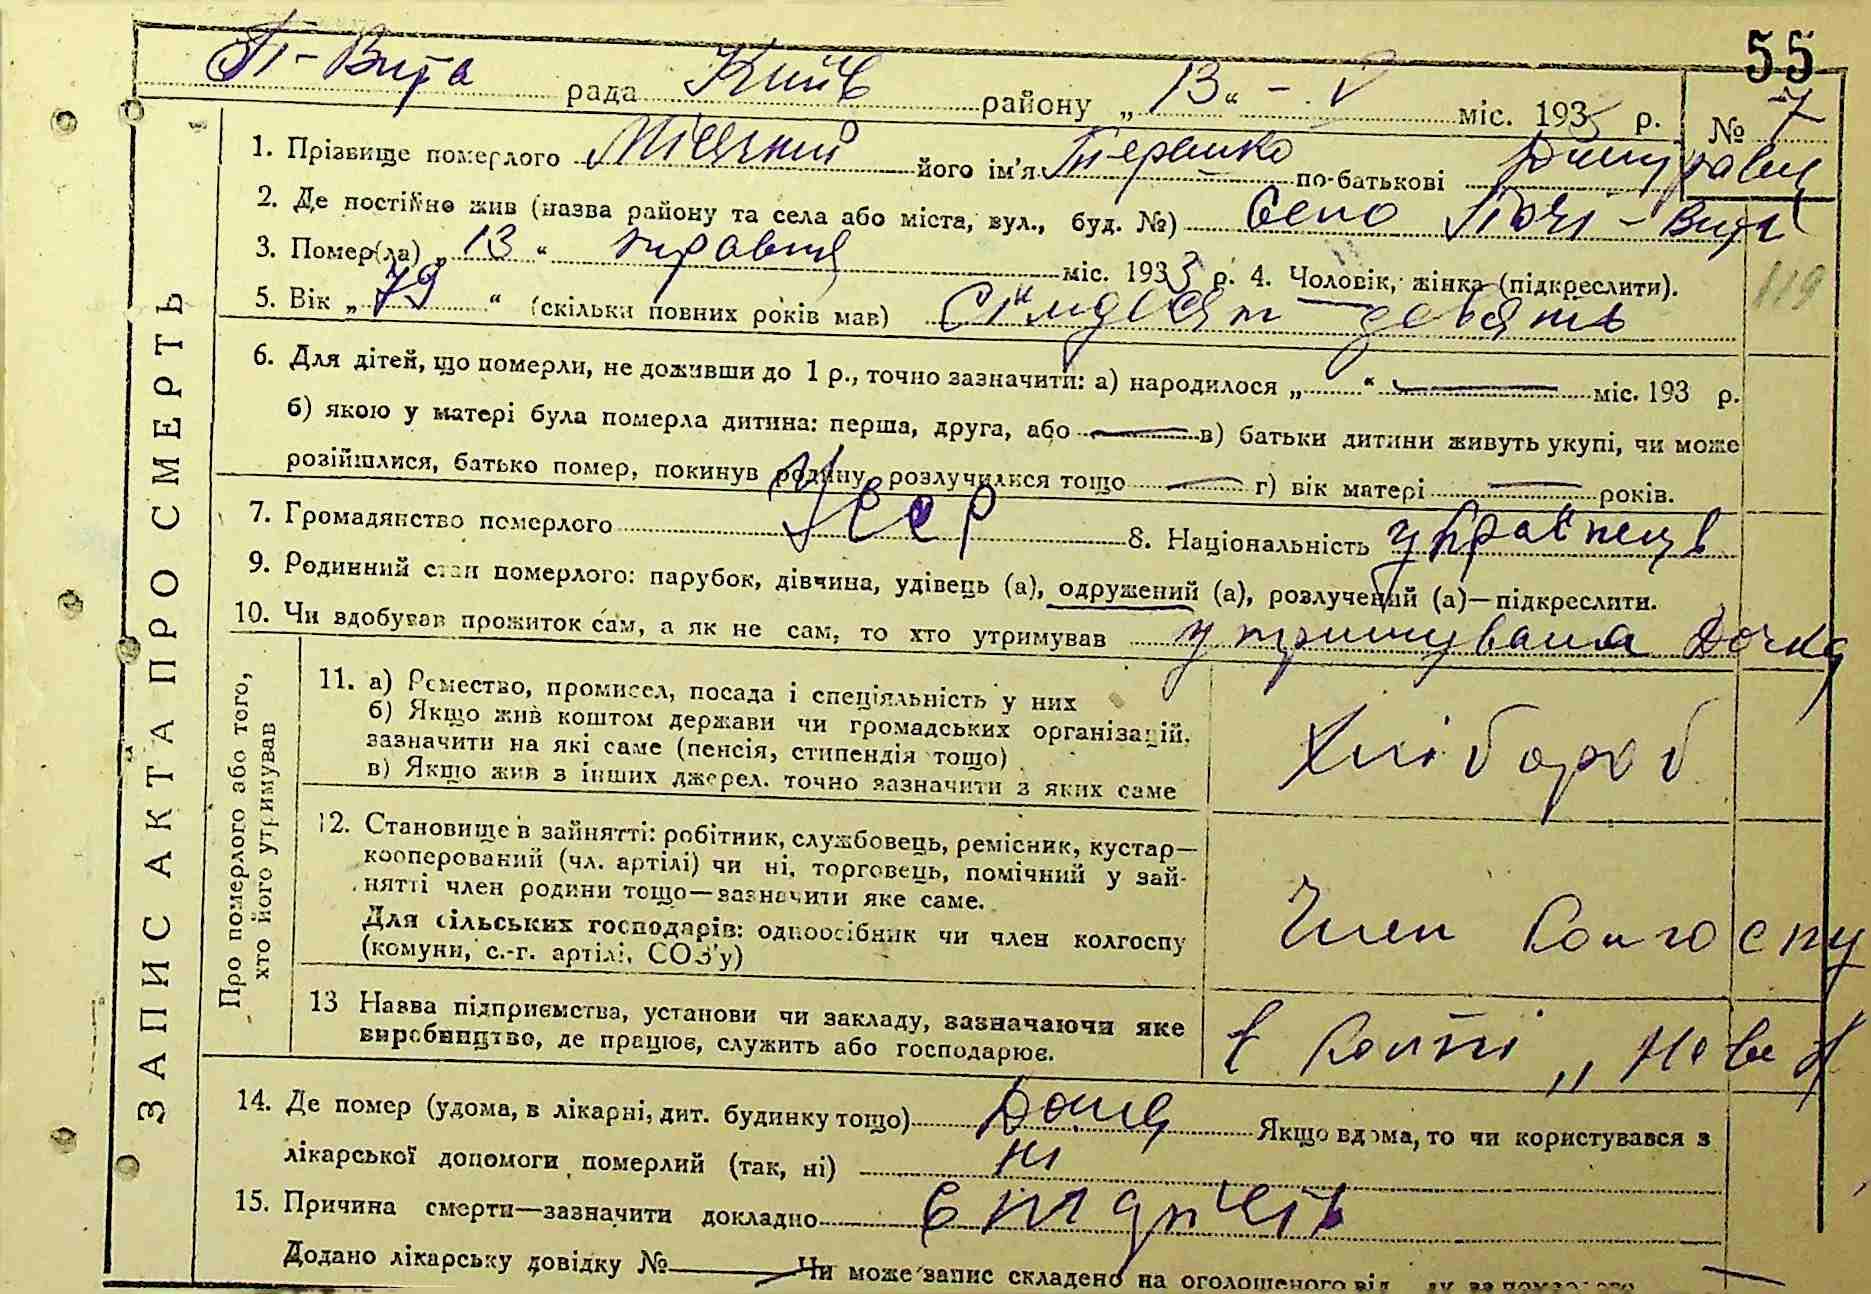 55
П-Вита рада Київ району „13“ - V міс. 193 р. № 7
1. Прізвище померлого Місячний його ім'я по-батькові
2. Де постійно жив (назва району та села або міста, вул., буд. №) Село Почт-Вита
3. Помер(ла) „13“ травня міс. 1933 р. 4. Чоловік, жінка (підкреслити).
119
5. Вік „79“ (скільки повних років мав) Сімдесят девять
6. Для дітей, що померли, не доживши до 1 р., точно зазначити: а) народилося „ “ міс. 193 р.
б) якою у матері була померла дитина: перша, друга, або в) батьки дитини живуть укупі, чи може
розійшлися, батько помер, покинув родину, розлучилися тощо г) вік матері років.
7. Громадянство померлого УССР 8. Національність українець
9. Родинний стан померлого: парубок, дівчина, удівець (а), одружений (а), розлучений (а)—підкреслити.
10. Чи вдобував прожиток сам, а як не сам, то хто утримував утримувала дочка
ЗАПИС АКТА ПРО СМЕРТЬ
Про померлого або того,
хто його утримував
11. а) Ремество, промисел, посада і спеціяльність у них
б) Якщо жив коштом держави чи громадських організацій,
зазначити на які саме (пенсія, стипендія тощо)
в) Якщо жив з інших джерел. точно зазначити з яких саме
Хлібороб
12. Становище в зайнятті: робітник, службовець, ремісник, кустар—
кооперований (чл. артілі) чи ні, торговець, помічний у зай-
нятті член родини тощо—зазначити яке саме.
Для сільських господарів: одноосібник чи член колгоспу
(комуни, с.-г. артілі, СОЗ'у)
Член Колгоспу
13 Назва підприємства, установи чи закладу, зазначаючи яке
виробництво, де працює, служить або господарює.
14. Де помер (удома, в лікарні, дит. будинку тощо) Дома Якщо вдома, то чи користувався з
лікарської допомоги померлий (так, ні) Ні
15. Причина смерти—зазначити докладно
Додано лікарську довідку № Чи може запис складено на оголошеного